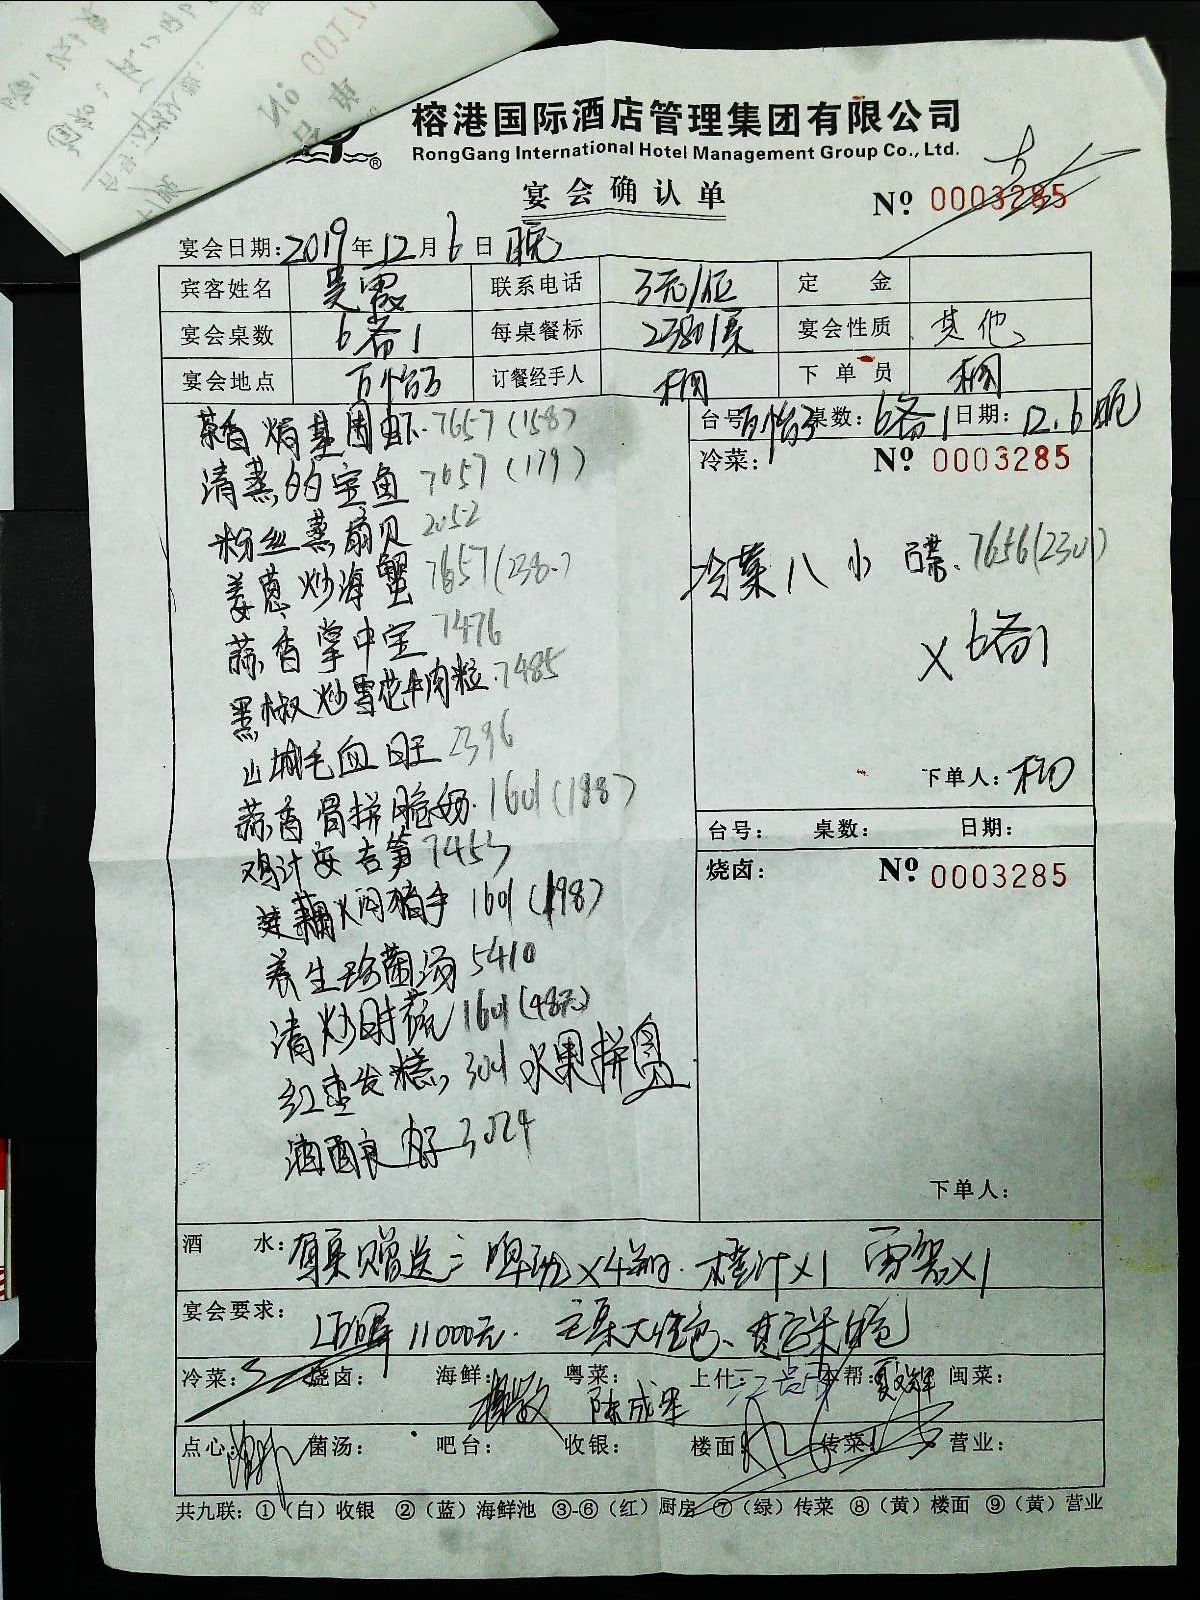 榕港国际酒店管理集团有限公司
RongGang International Hotel Management Group Co., Ltd.
宴会确认单
№ 0003285
宴会日期:2019年12月6日 晚
宾客姓名 吴 联系电话 3元/位 定金
宴会桌数 6备1 每桌餐标 2380/桌 宴会性质 其他
宴会地点 百怡 订餐经手人 下单员
茶香焗基围虾 7657(158)
清蒸的宝鱼 7657(179)
粉丝蒸扇贝 2052
姜葱炒海蟹 7657(238)
蒜香掌中宝 7476
黑椒炒雪花牛肉粒 7485
山城毛血旺 2396
蒜香骨拼脆奶 1601(198)
鸡汁安吉笋 7453
莲藕火闷猪手 1601(198)
养生珍菌汤 5410
清炒时蔬 1601(48元)
红枣发糕 301 水果拼盘
酒酉良丸子 3024
台号: 百怡 桌数:6备1 日期:12.6晚
冷菜: № 0003285
冷菜八小碟 7656(230)
×6备1
下单人:
台号: 桌数: 日期:
烧卤: № 0003285
下单人:
酒水: 每桌赠送:啤酒×4瓶 橙汁×1 雪碧×1
宴会要求: 11000元 主桌大红色、其它米白色
冷菜: 烧卤: 海鲜: 粤菜: 陈成果 上什: 本帮: 闽菜:
点心: 菌汤: 吧台: 收银: 楼面: 传菜: 营业:
共九联:①(白)收银 ②(蓝)海鲜池 ③-⑥(红)厨房 ⑦(绿)传菜 ⑧(黄)楼面 ⑨(黄)营业